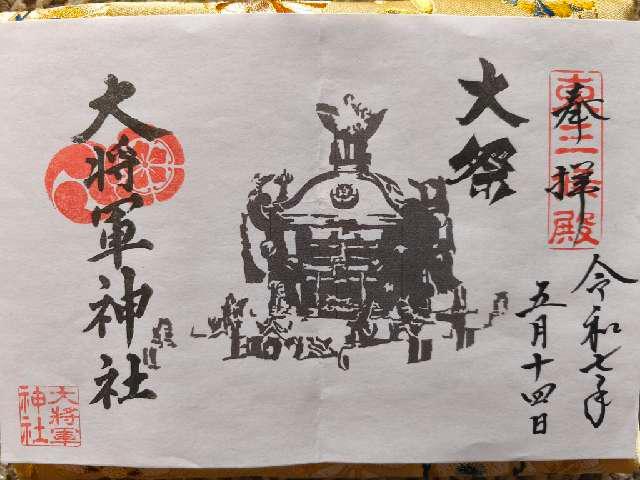 奉拝
東三條殿
令和七年
五月十四日
大祭
大将軍神社
大将軍
神社